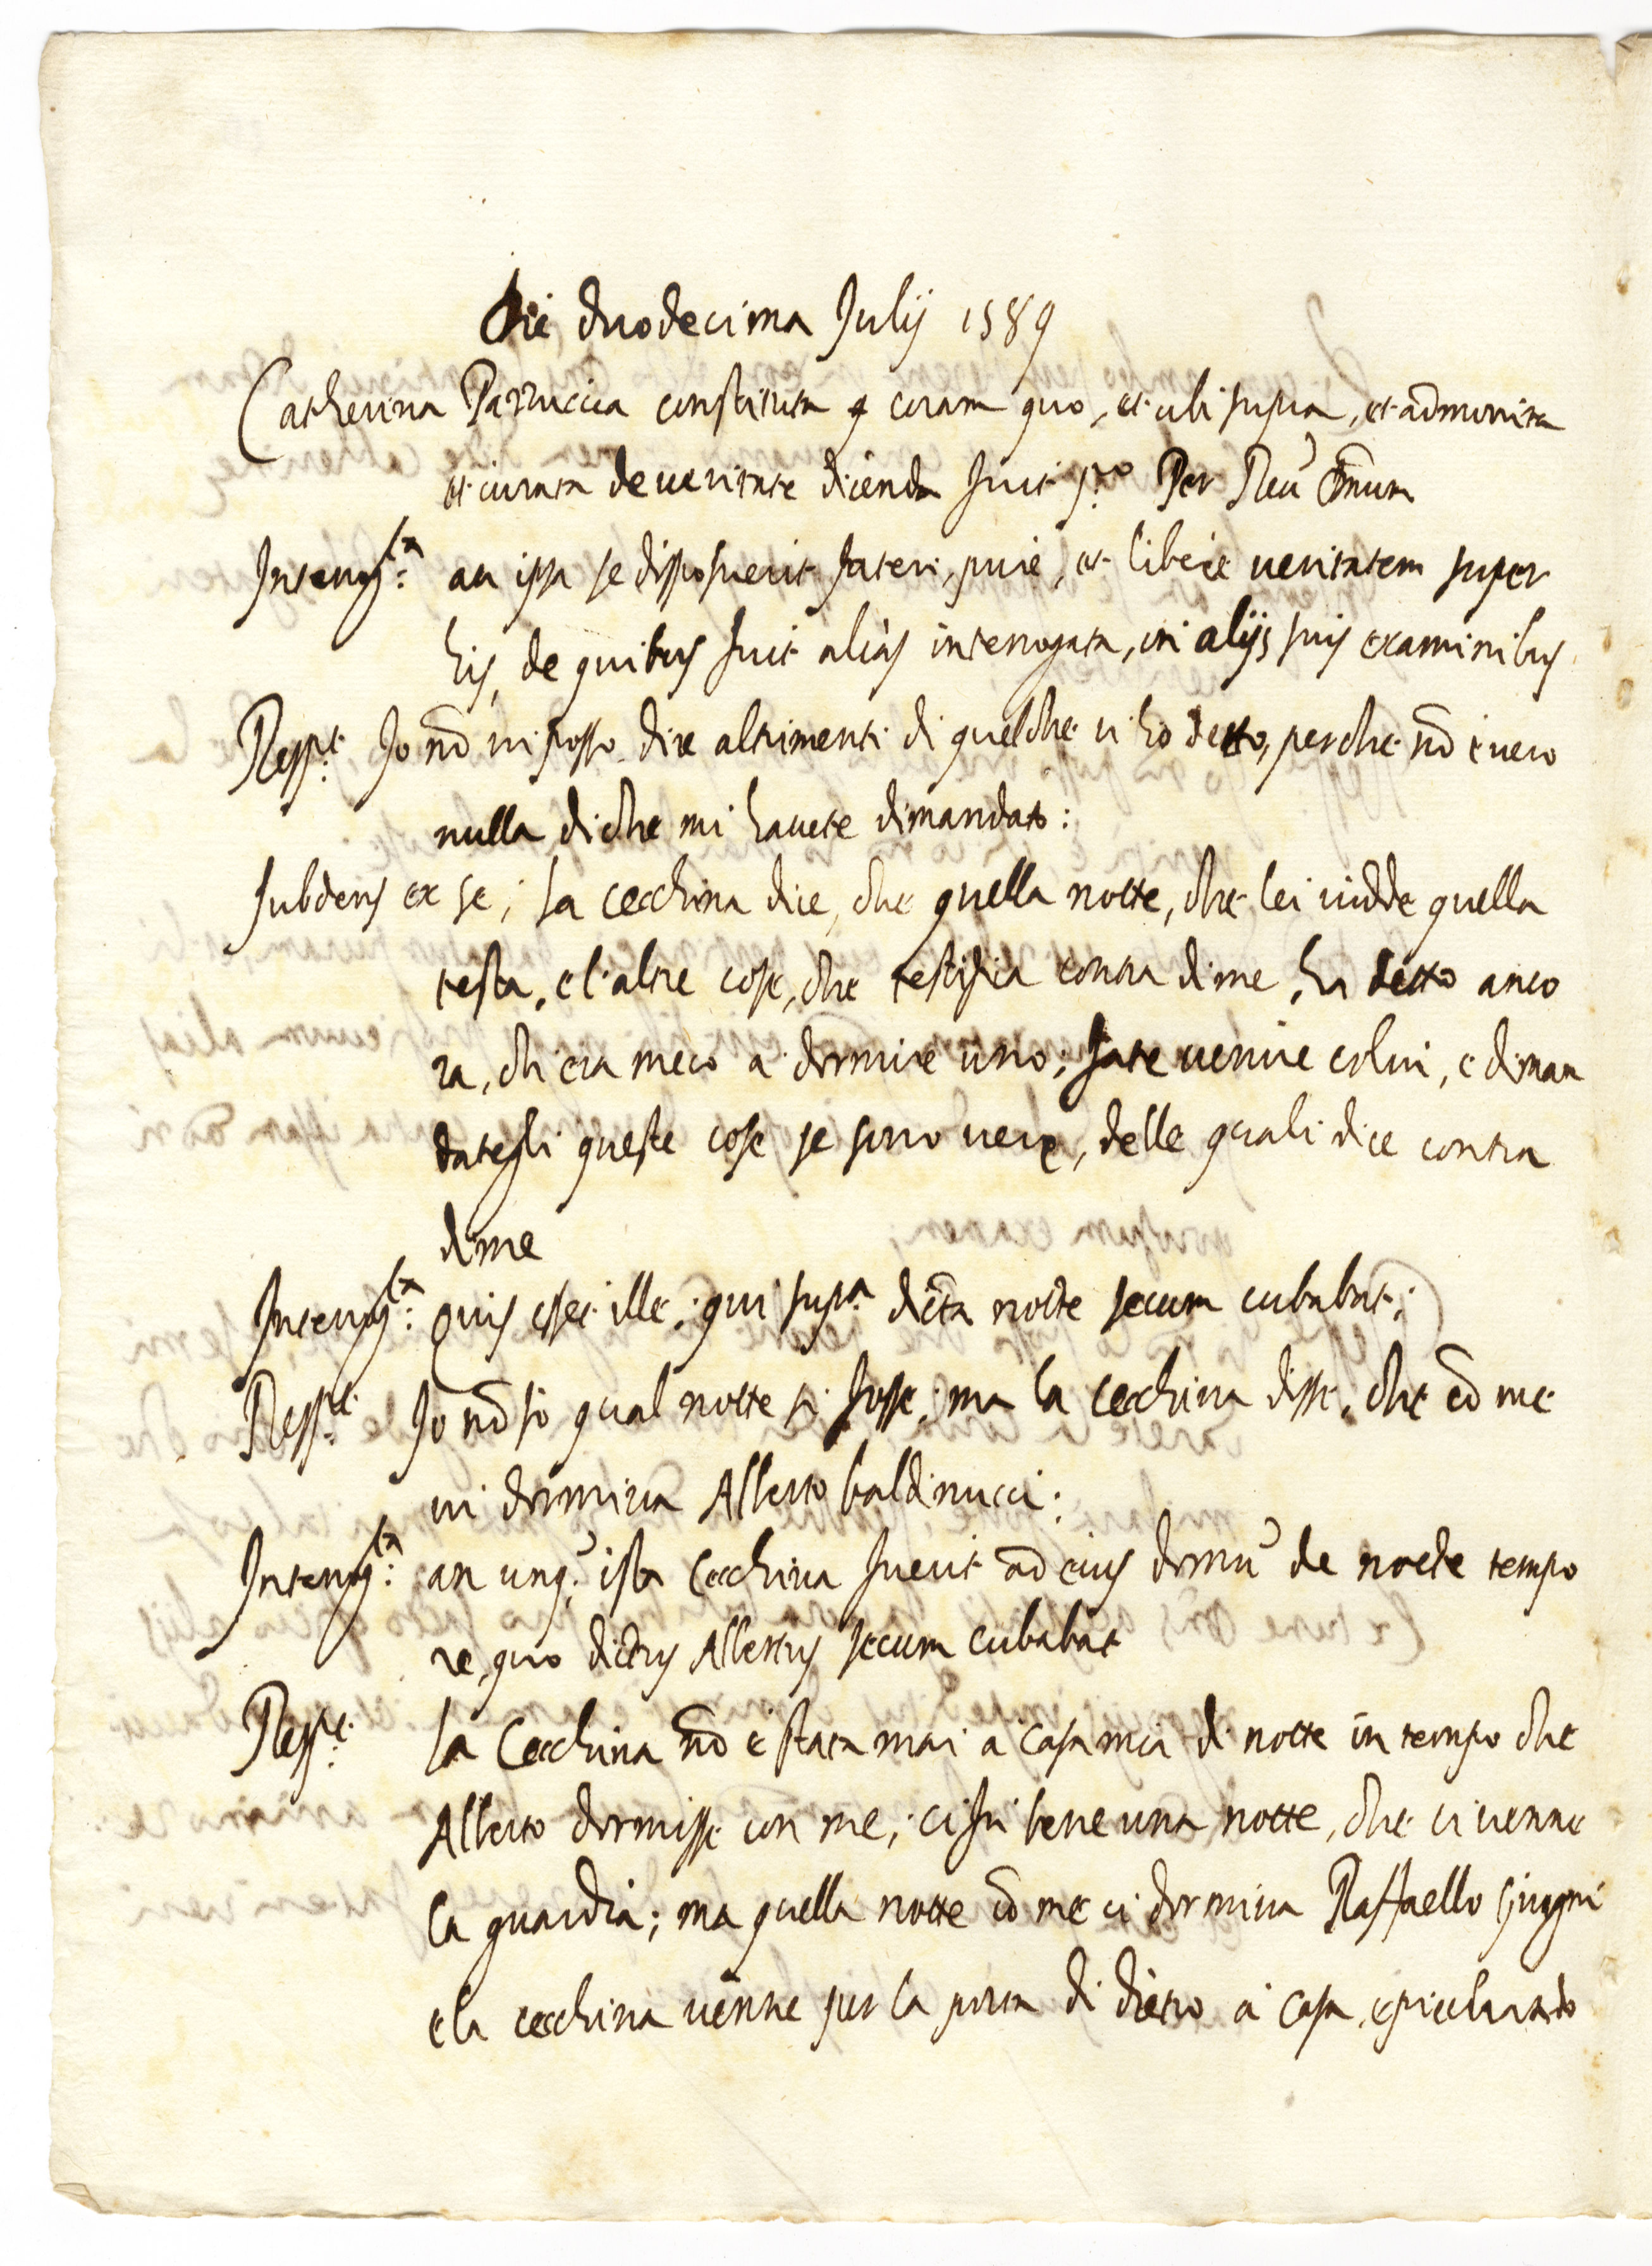 Die duodecima Julij 1589
Catherina Parruccia constituta q coram quo, et ubi supra, et admonita
et iurata de veritate dicenda fuit p.ᵗᵒ Per Reũ Dñum
Interrog.ᵗᵃ: an ipsa se disposuerit fateri, pure, et libere veritatem super
his, de quibus fuit aliàs interrogata, in alijs suis examinibus
Resp.ᵗ: Io nõ vi posso dire altrimenti di quelche vi hò detto, perche nõ è vero
nulla di che mi havete dimandato:
Subdens ex se; la Cecchina dice, che quella notte, che lei vidde quella
testa, e l'altre cose, che testifica contra di me, ha detto anco
ra, ch'era meco a dormire uno; fate venire colui, e diman
dategli queste cose se sono vere, delle quali dice contra
di me
Interrog.ᵗᵃ: quis esset ille, qui sup.ᵃ dicta nocte secum cubabat;
Resp.ᵗ: Io nõ sò qual notte si fosse; ma la Cecchina disse, che cõ me
vi dormiva Alberto baldinucci:
Interrog.ᵗᵃ: an unq̃ ista Cecchina fuerit ad eius domũ de nocte tempo
re, quo dictus Albertus secum cubabat
Resp.ᵗ: la Cecchina nõ è stata mai à casa mia di notte in tempo che
Alberto dormisse con me; ci fu bene una notte, che ci venne
la guardia; ma quella notte cõ me ci dormiva Raffaello Giugni
e la cecchina venne per la porta di dietro à casa, e picchiando